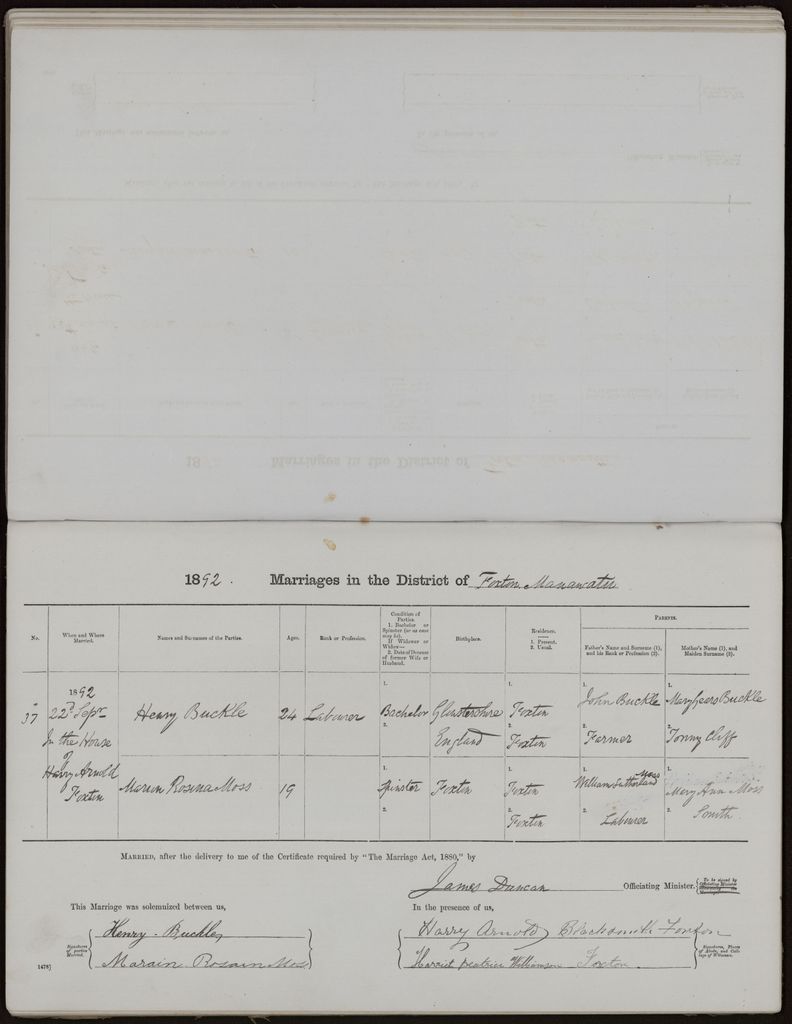 1892. Marriages in the District of Foxton Manawatu
No.
When and Where Married.
Names and Surnames of the Parties.
Ages.
Rank or Profession.
Condition of Parties.
1. Bachelor or Spinster (or as case may be).
If Widower or Widow—
2. Date of Decease of former Wife or Husband.
Birthplace.
Residence.
1. Present.
2. Usual.
PARENTS.
Father's Name and Surname (1), and his Rank or Profession (2).
Mother's Name (1), and Maiden Surname (2).
37
1892
22d Sepr
In the House
of
Harry Arnold
Foxton
Henry Buckle
24
Labourer
1.
Bachelor
2.
Gloustershire
England
1.
Foxton
2.
Foxton
1.
John Buckle
2.
Farmer
1.
Mary Buckle
2.
Cliff
Marion Rosina Moss
19
1.
Spinster
2.
Foxton
1.
Foxton
2.
Foxton
1.
William Sutherland Moss
2.
Labourer
1.
Mary Ann Moss
2.
Smith
MARRIED, after the delivery to me of the Certificate required by "The Marriage Act, 1880," by
James Duncan Officiating Minister.
To be signed by Officiating Minister
This Marriage was solemnized between us,
In the presence of us,
Signatures of parties Married.
Henry Buckle
Marain Rosain Moss
Harry Arnold Blacksmith Foxton
Harriet Beatrice Williamson Foxton
Signatures, Places of Abode, and Callings of Witnesses.
1478]